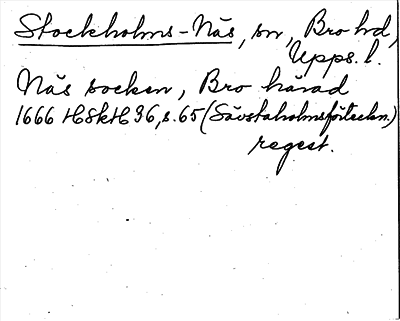 Stockholms-Näs, sn, Bro hd,
Upps. l.
Näs socken, Bro härad
1666 HSkH 36, s. 65 (Sävstaholmsförteckn.)
regest.